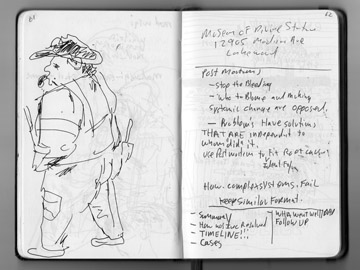 61
62
Museum of Divine Statues
12905 Madison Ave
Lakewood
Post Mortems
- Stop the Bleeding
- Who to Blame and making
systemic change are opposed.
- Problems Have solutions
THAT ARE independent to
whom did it.
use Post mortem to Fix Root causes
How complex systems Fail
Keep similar Format.
- Summary
- How not/we Resolved
- TIMELINE!!!
- Cases
what went well/BAD
Follow UP